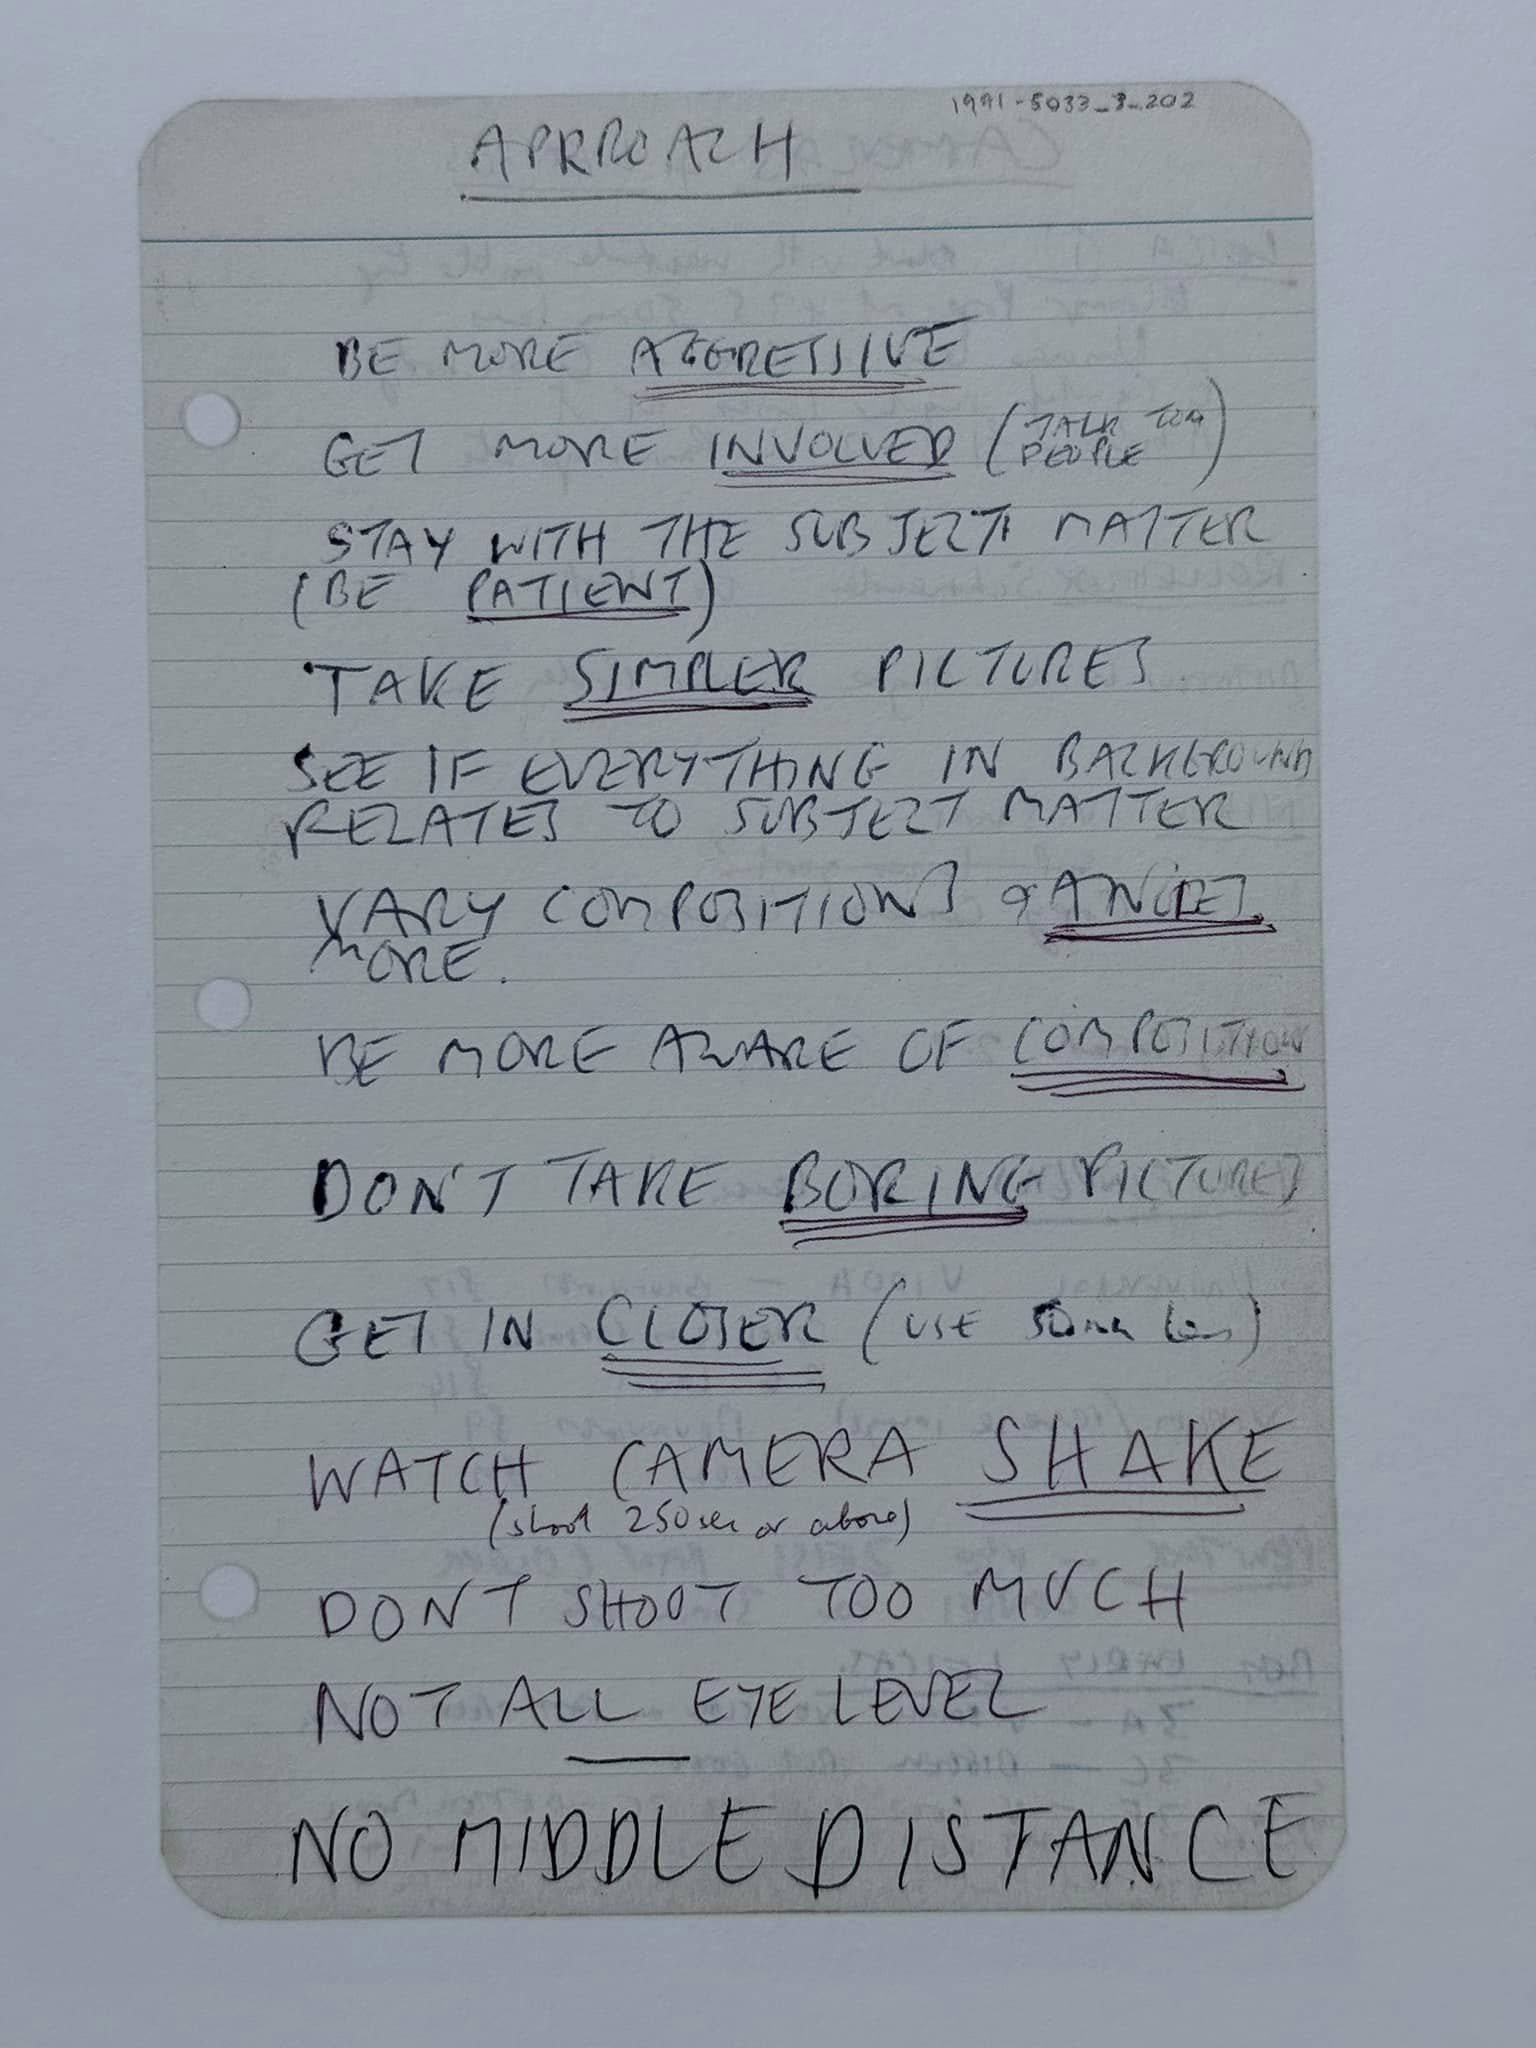 1991-5033_3_202
APRROACH
BE MORE AGGRESSIVE
GET MORE INVOLVED (TALK TO
PEOPLE)
STAY WITH THE SUBJECT MATTER
(BE PATIENT)
TAKE SIMPLER PICTURES
SEE IF EVERYTHING IN BACKGROUND
RELATES TO SUBJECT MATTER
VARY COMPOSITIONS & ANGLES
MORE.
BE MORE AWARE OF COMPOSITION
DON'T TAKE BORING PICTURES
GET IN CLOSER (USE 50mm lens)
WATCH CAMERA SHAKE
(shoot 250sec or above)
DON'T SHOOT TOO MUCH
NOT ALL EYE LEVEL
NO MIDDLE DISTANCE